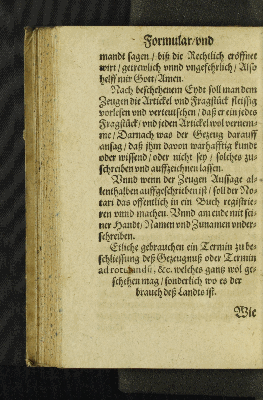 Formular/vnd
mandt sagen / biß die Rechtlich eröffnet
wirt / getrewlich vnnd vngefehrlich / Also
helff mir Gott / Amen.
Nach beschehenem Eydt soll man dem
Zeugen die Artickel vnd Fragstück fleissig
vorlesen vnd verteutschen / daß er ein jedes
Fragstück / vnd jeden Artickel wol verneme
me / Darnach was der Gezeug darauff
ansag / daß jhm davon warhafftig kundt
oder wissend / oder nicht sey / solches zu-
schreiben vnd auffzeichnen lassen.
Vnnd wenn der Zeugen Aussage al-
lenthalben auffgeschrieben ist / soll der No-
tari das offentlich in ein Buch registrie-
ren vnnd machen. Vnnd am ende mit sei-
ner Handt / Namen vnd Zunamen vnder-
schreiben.
Etliche gebrauchen ein Termin zu be-
schliessung deß Gezeugnuß oder Termin
ad rotulandū, &c. welches gantz wol ge-
schehen mag / sonderlich wo es der
brauch deß Landts ist.
Wie